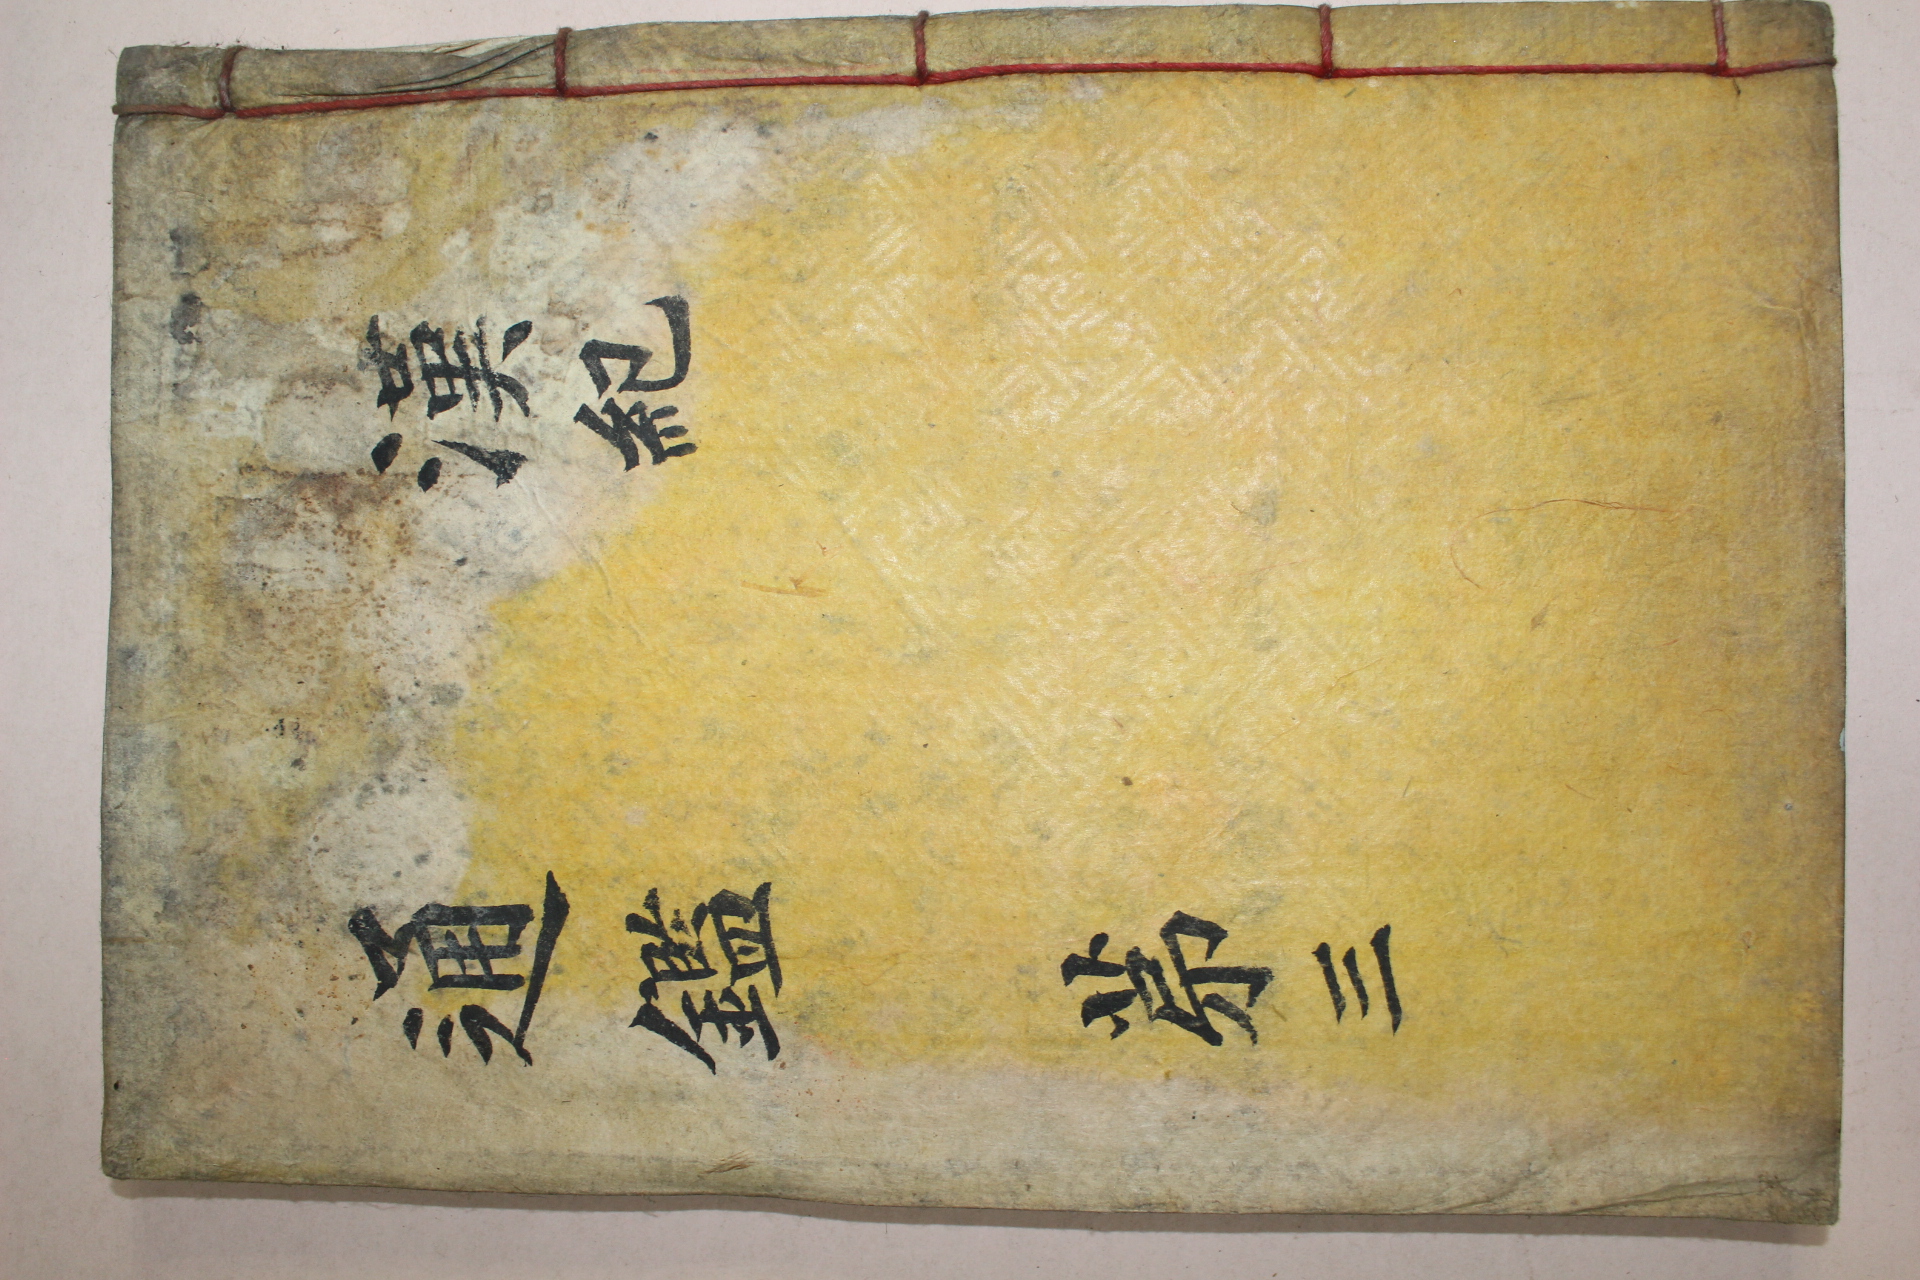 漢紀
通鑑 苐三